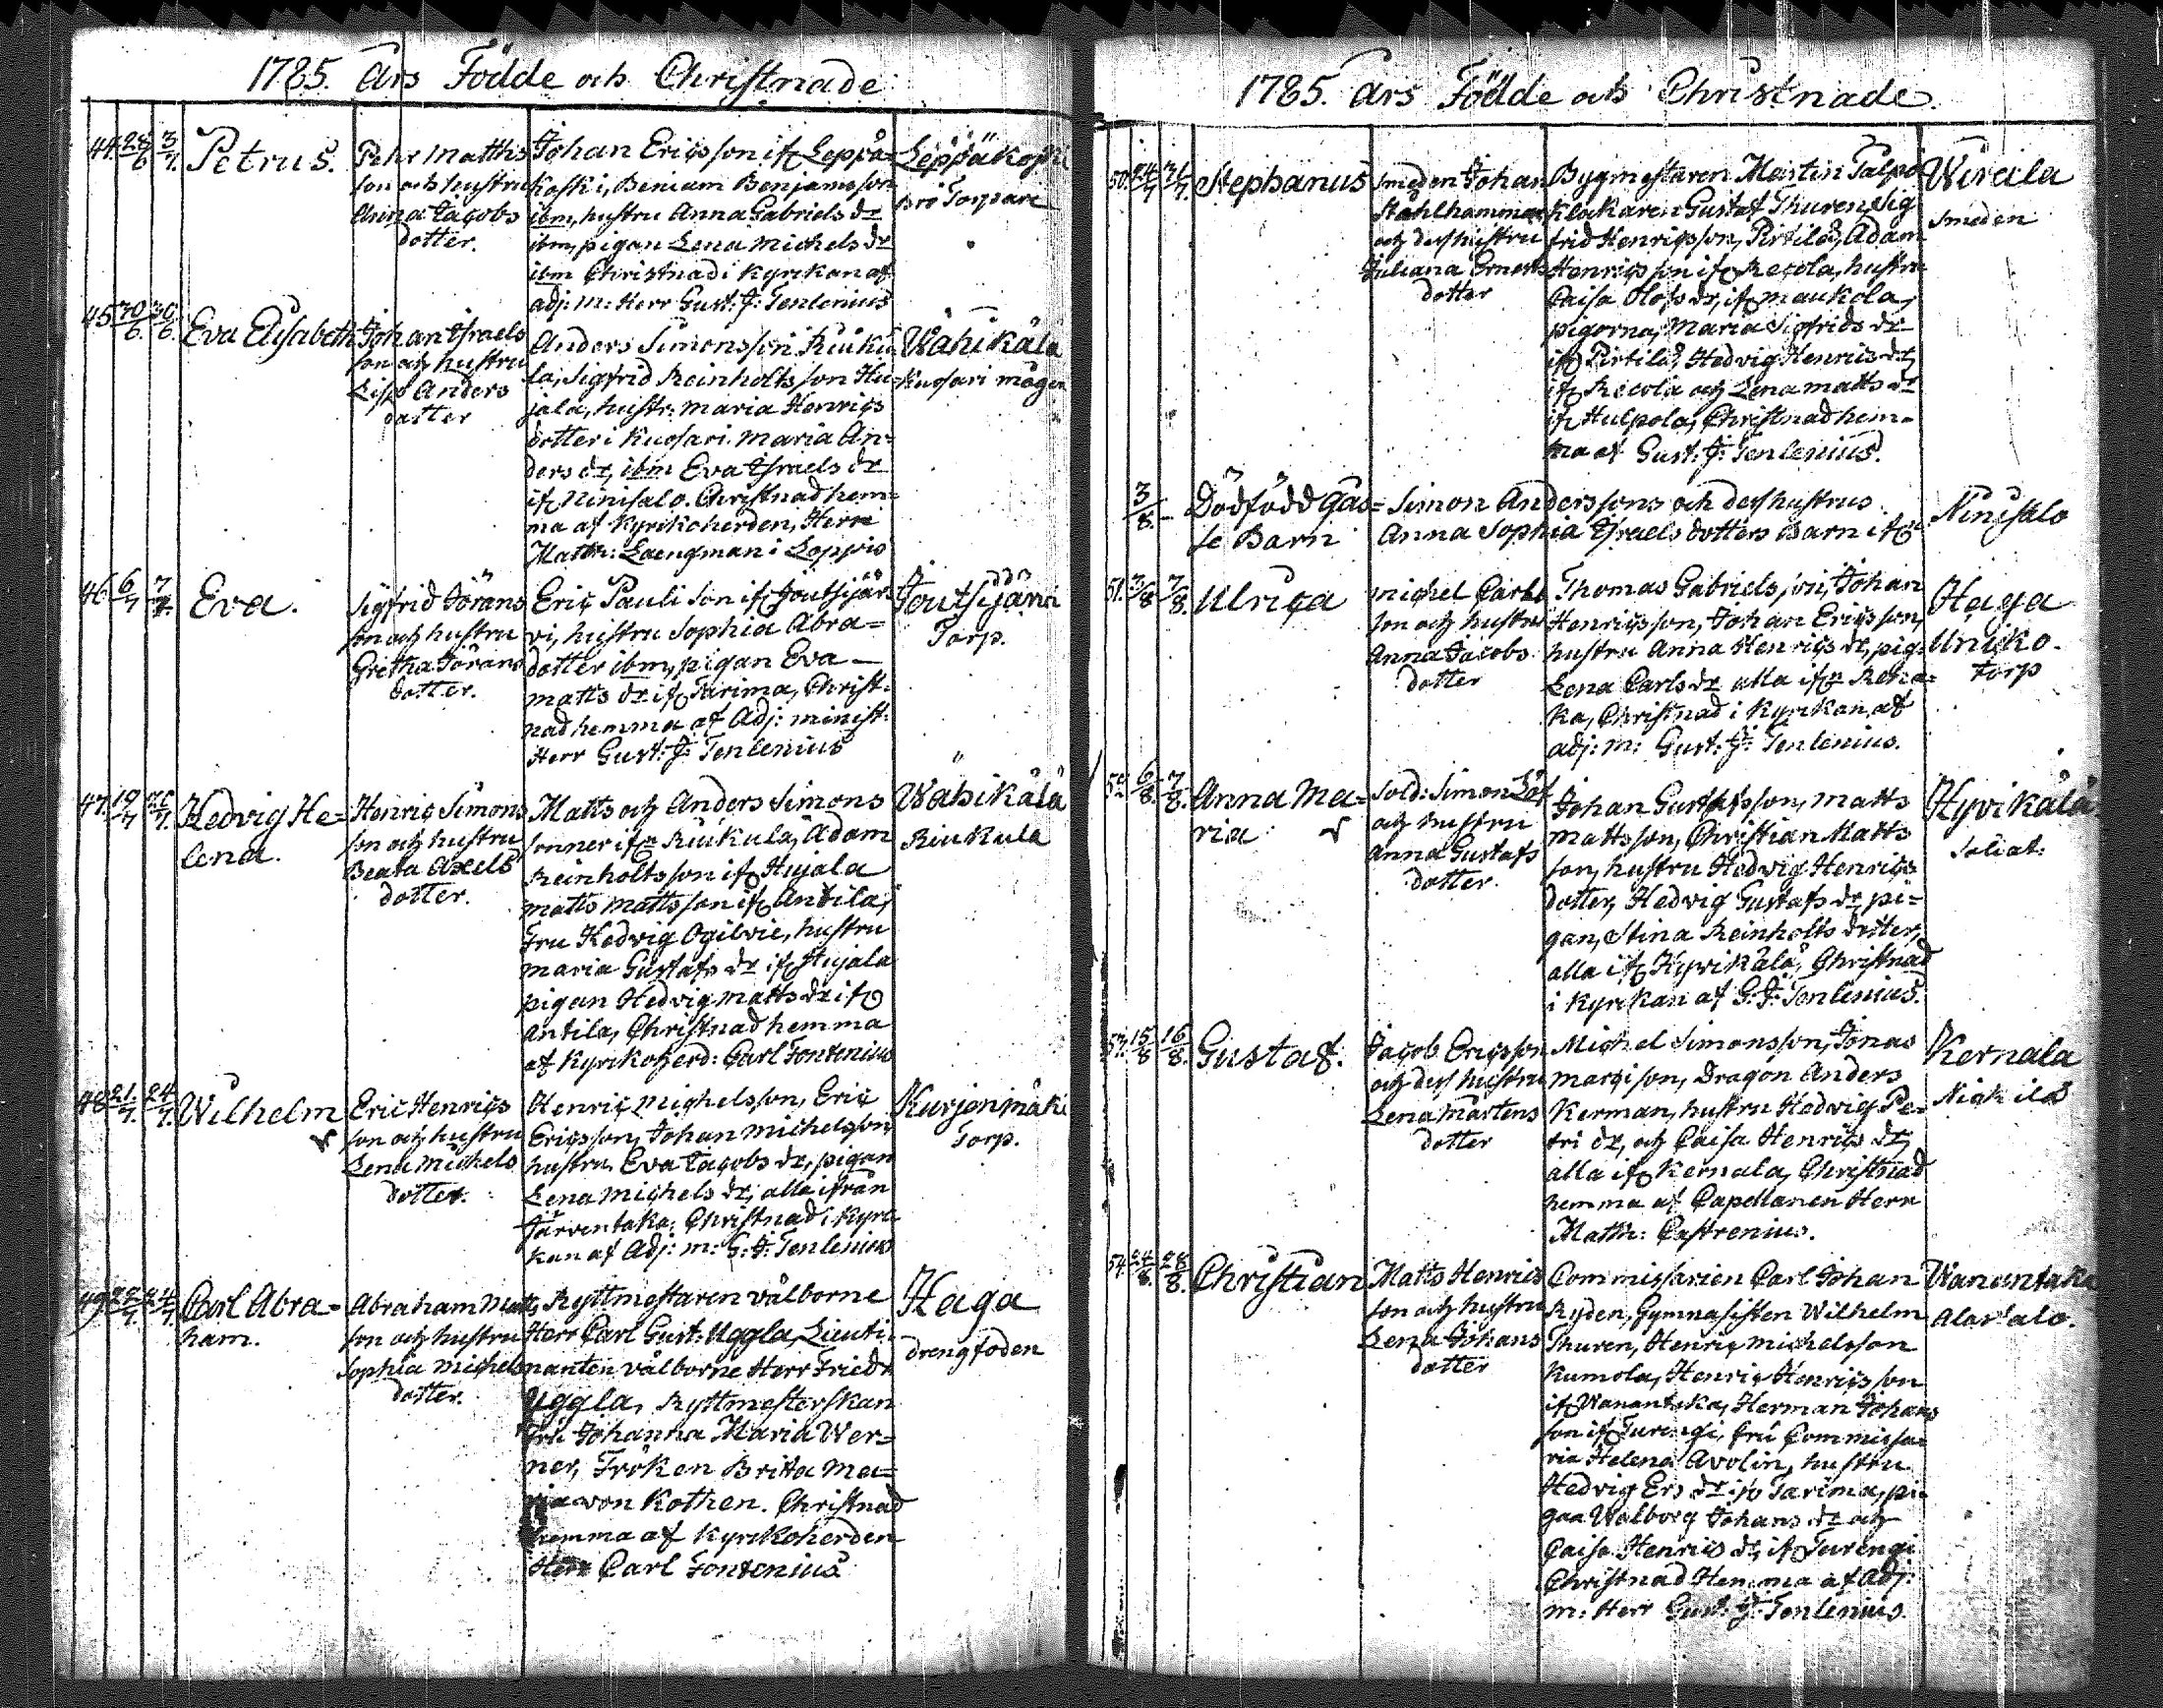 1785. års Födde och Christnade
44. 28/6 3/7. Petrus.
Pehr Matths
son och hustru
Anna Jacobs
dotter.
Johan Ericsson if. Leppä-
koski, Beniam Benjamsson
ibm, hustru Anna Gabriels dr
ibm, pigan Lena Michels dr
ibm Christnad i kyrkan af
adj: m: Herr Gust: J: Tenlenius
Leppäkoski
bro Torpare
45 30/6. 30/6. Eva Elisabeth
Johan Israels
son och hustru
Lisa Anders
dotter
Anders Simonsson Riuku
la, Sigfrid Reinholtsson Hu-
jala, hustr: Maria Henrics
dotter i Kuosari. Maria An-
ders dr, ibm Eva Israels dr
if. Ninisalo. Christnad hem-
ma af Kyrkoherden, Herr
Math: Laengman i Loppis
Wähikälä
Kuosari mågen
46. 6/7 7/7. Eva.
Sigfrid Jörans
son och hustru
Gretha Jörans
dotter.
Eric Pauli son if. Joutsijär
vi, hustru Sophia Abra-
dotter ibm, pigan Eva
Matts dr if. Tarima, Christ-
nad hemma af Adj: minist:
Herr Gust: J: Tenlenius
Joutsijärvi
Torp.
47. 19/7 Hedvig He-
lena.
Henric Simons
son och hustru
Beata Axels
dotter.
Matts och Anders Simons
sonner if. Riukula, Adam
Reinholtsson if. Hujala
Matts Mattsson if. Antila,
Fru Hedvig Ogilvie, hustru
Maria Gustafs dr if. Hujala
pigan Hedvig Matts dr if.
Antila, Christnad hemma
af Kyrkoherd: Carl Fontenius
Wähikälä
Riukula
48 21/7. 24/7. Wilhelm
Eric Henrics
son och hustru
Lena Michels
dotter.
Henric Michelsson, Eric
Ericsson, Johan Michelsson
hustru Eva Jacobs dr, pigan
Lena Michels dr, alla ifrån
Järventaka, Christnad i kyr-
kan af Adj: m: G: J: Tenlenius
Kurjenmäki
Torp.
49 24/7 Carl Abra-
ham.
Abraham Matts
son och hustru
Sophia Michels
dotter.
Ryttmestaren välborne
Herr Carl Gust: Uggla, Lieuti-
nanten välborne Herr Friedr
Uggla, Ryttmesterskan
Fru Johanna Maria Wer-
ner, Fröken Brita Ma-
ria von Kothen. Christnad
hemma af Kyrkoherden
Herr Carl Fontenius
Haga
drengfoden
1785. års Födde och Christnade.
50 24/7 31/7. Stephanus
Smeden Johan
Stålhammar
och dess hustru
Juliana Ernests
dotter
Bygmestaren Martin Talpo
Klockaren Gustaf Thuren, Sig
frid Henricsson, Pirtilä, Adam
Henricsson if. Recola, hustru
Caisa Olofs dr, if. Maukola,
pigorna, Maria Sigfrids dr
if. Pirtilä, Hedvig Henrics dr,
if. Recola och Lena Matts dr
if. Hulpola, Christnad hem-
ma af Gust: J: Tenlenius.
Wirala
Smeden
3/8. Dödfödd Gås-
se Barn
Simon Anderssons och dess hustrus
Anna Sophia Israels dotters Barn if.
Ninisalo
51. 3/8 7/8. Ulrica
Michel Carls
son och hustru
Anna Jacobs
dotter
Thomas Gabrielsson, Johan
Henricsson, Johan Ericsson,
hustru Anna Henrics dr, pig.
Lena Carls dr alla if.
ka, Christnad i Kyrkan, af
adj: m: Gust: J: Tenlenius.
Haga
Uniko.
torp
52 6/8. 7/8. Anna Ma-
ria
Sold: Simon Löf
och hustru
Anna Gustafs
dotter.
Johan Gustafsson, Matts
Mattsson, Christian Matts
son, hustru Hedvig Henrics
dotter, Hedvig Gustafs dr, pi-
gan, Stina Reinholts dotter,
alla if. Hyvikälä, Christnad
i Kyrkan af G: J: Tenlenius.
Hyvikälä
Soldat.
53. 15/8 16/8. Gustaf.
Jacob Ericsson
och dess hustru
Lena Mårtens
dotter
Michel Simonsson, Jonas
Marcison, Dragon Anders
Kerman, hustru Hedvig Pe-
tri dr, och Caisa Henrics dr,
alla if. Kernala, Christnad
hemma af Capellanen Herr
Math: Castrenius.
Kernala
Nickilä
54. 24/8. 28/8. Christian
Matts Henrics
son och hustru
Lena Johans
dotter
Commissarien Carl Johan
Ryden, Gymnasisten Wilhelm
Thuren, Henric Michelsson
Kumola, Henric Henricsson
if. Wanantaka, Herman Johans
son if. Turengi, fru Commissa
ria Helena Avolin, hustru
Hedvig Ers dr if. Tarima, pi-
gan Walborg Johans dr och
Caisa Henrics dr, if. Turengi
Christnad Hemma af Adj:
m: Herr Gust: J: Tenlenius.
Wanantaka
Alastalo.